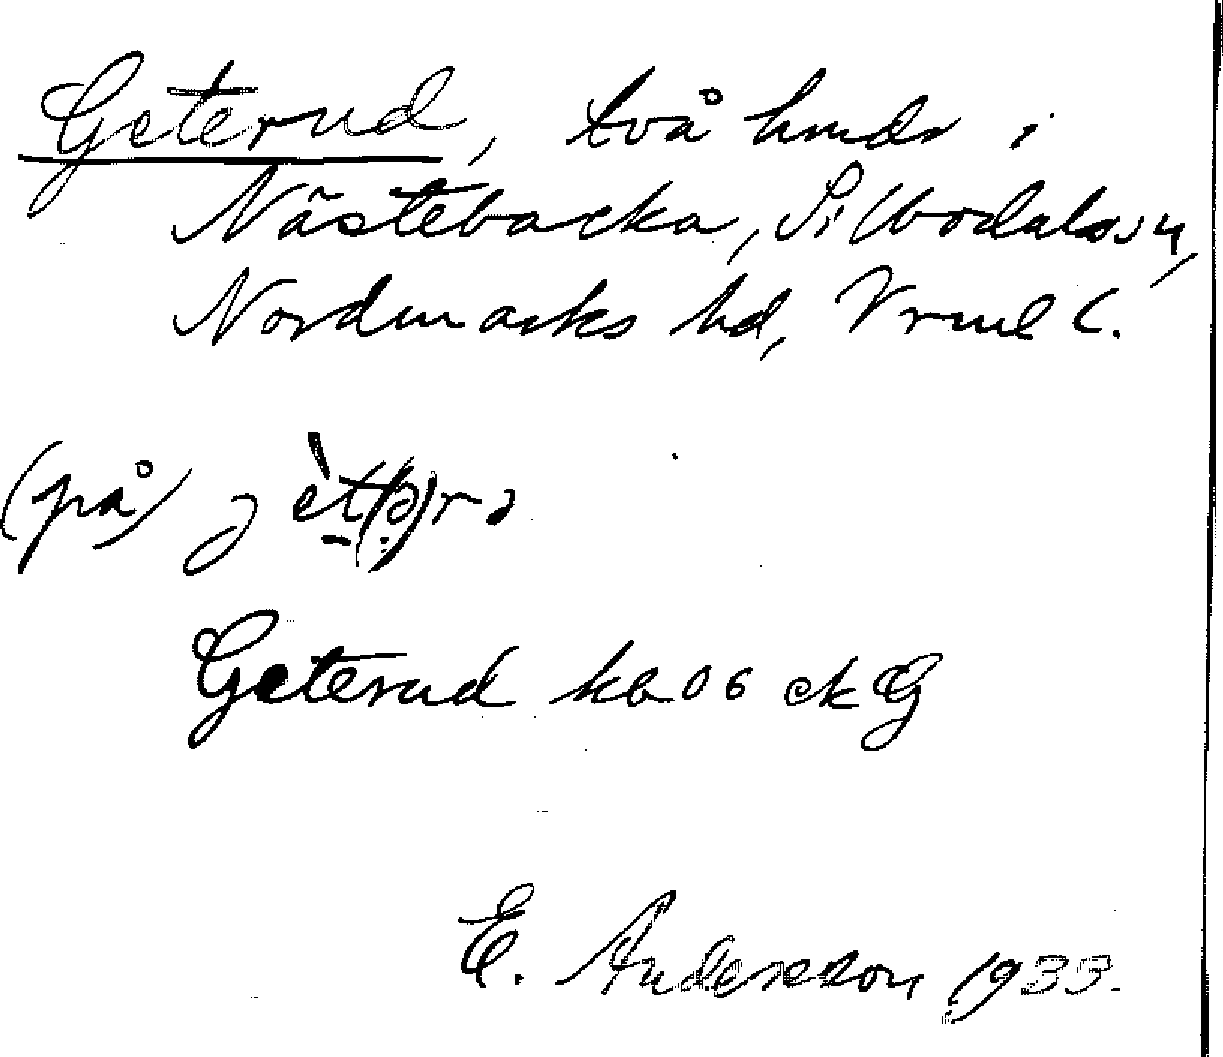 Geterud, två hmdr i
Nästebacka, Silbodals sn,
Nordmarks hd, Vrml l.
(på) jèt(ə)rə
Geterud kb 06 ek G
E. Andersson 1933.